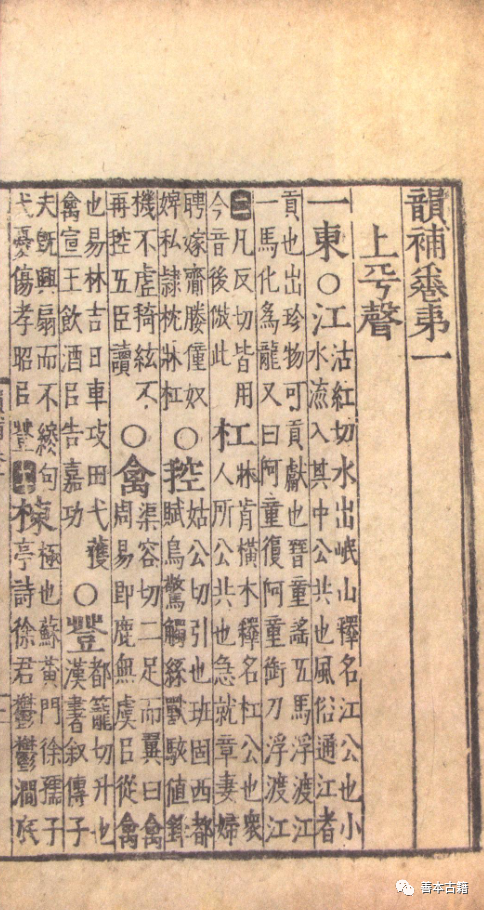 韻補卷弟一
上平聲
一東○江沽紅切水出岷山釋名江公也小
水流入其中公共也風俗通江者
貢也出珍物可貢獻也晉童謠五馬浮渡江
一馬化爲龍又曰阿童復阿童銜刀浮渡江
凡反切皆用
今音後倣此
杠牀歬橫木釋名杠公也衆
人所公共也急就章妻婦
聘嫁齎媵僮奴
婢私隸枕牀杠
○控姑公切引也班固西都
賦鳥驚觸絲獸駭值鋒
機不虛掎絃不
再控五臣讀
○禽渠容切二足而翼曰禽
周易即鹿無虞㠯從禽
也易林吉日車攻田弋獲
禽宣王飲酒㠯告嘉功
○登都籠切升也
漢書敘傳子
夫旣興扇而不終句
弋憂傷孝昭㠯登
棟極也蘇黃門徐孺子
亭詩徐君鬱鬱澗底
善本古籍